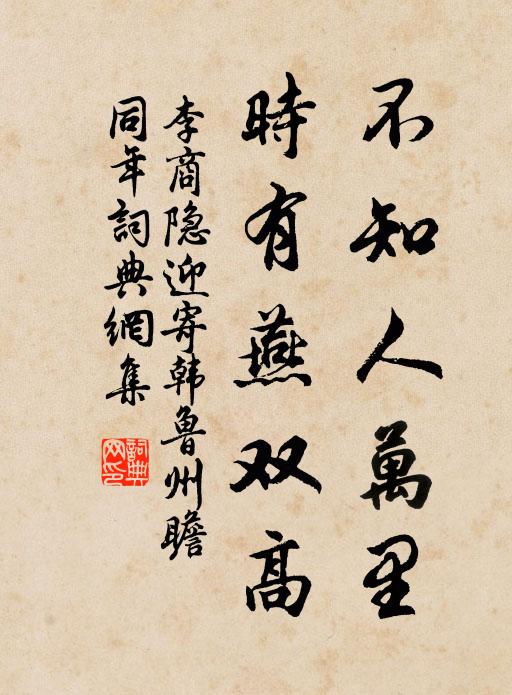 不知人萬里
時有燕双高
李商隐迎寄韩鲁州瞻
同年詞典網集
詞典网印